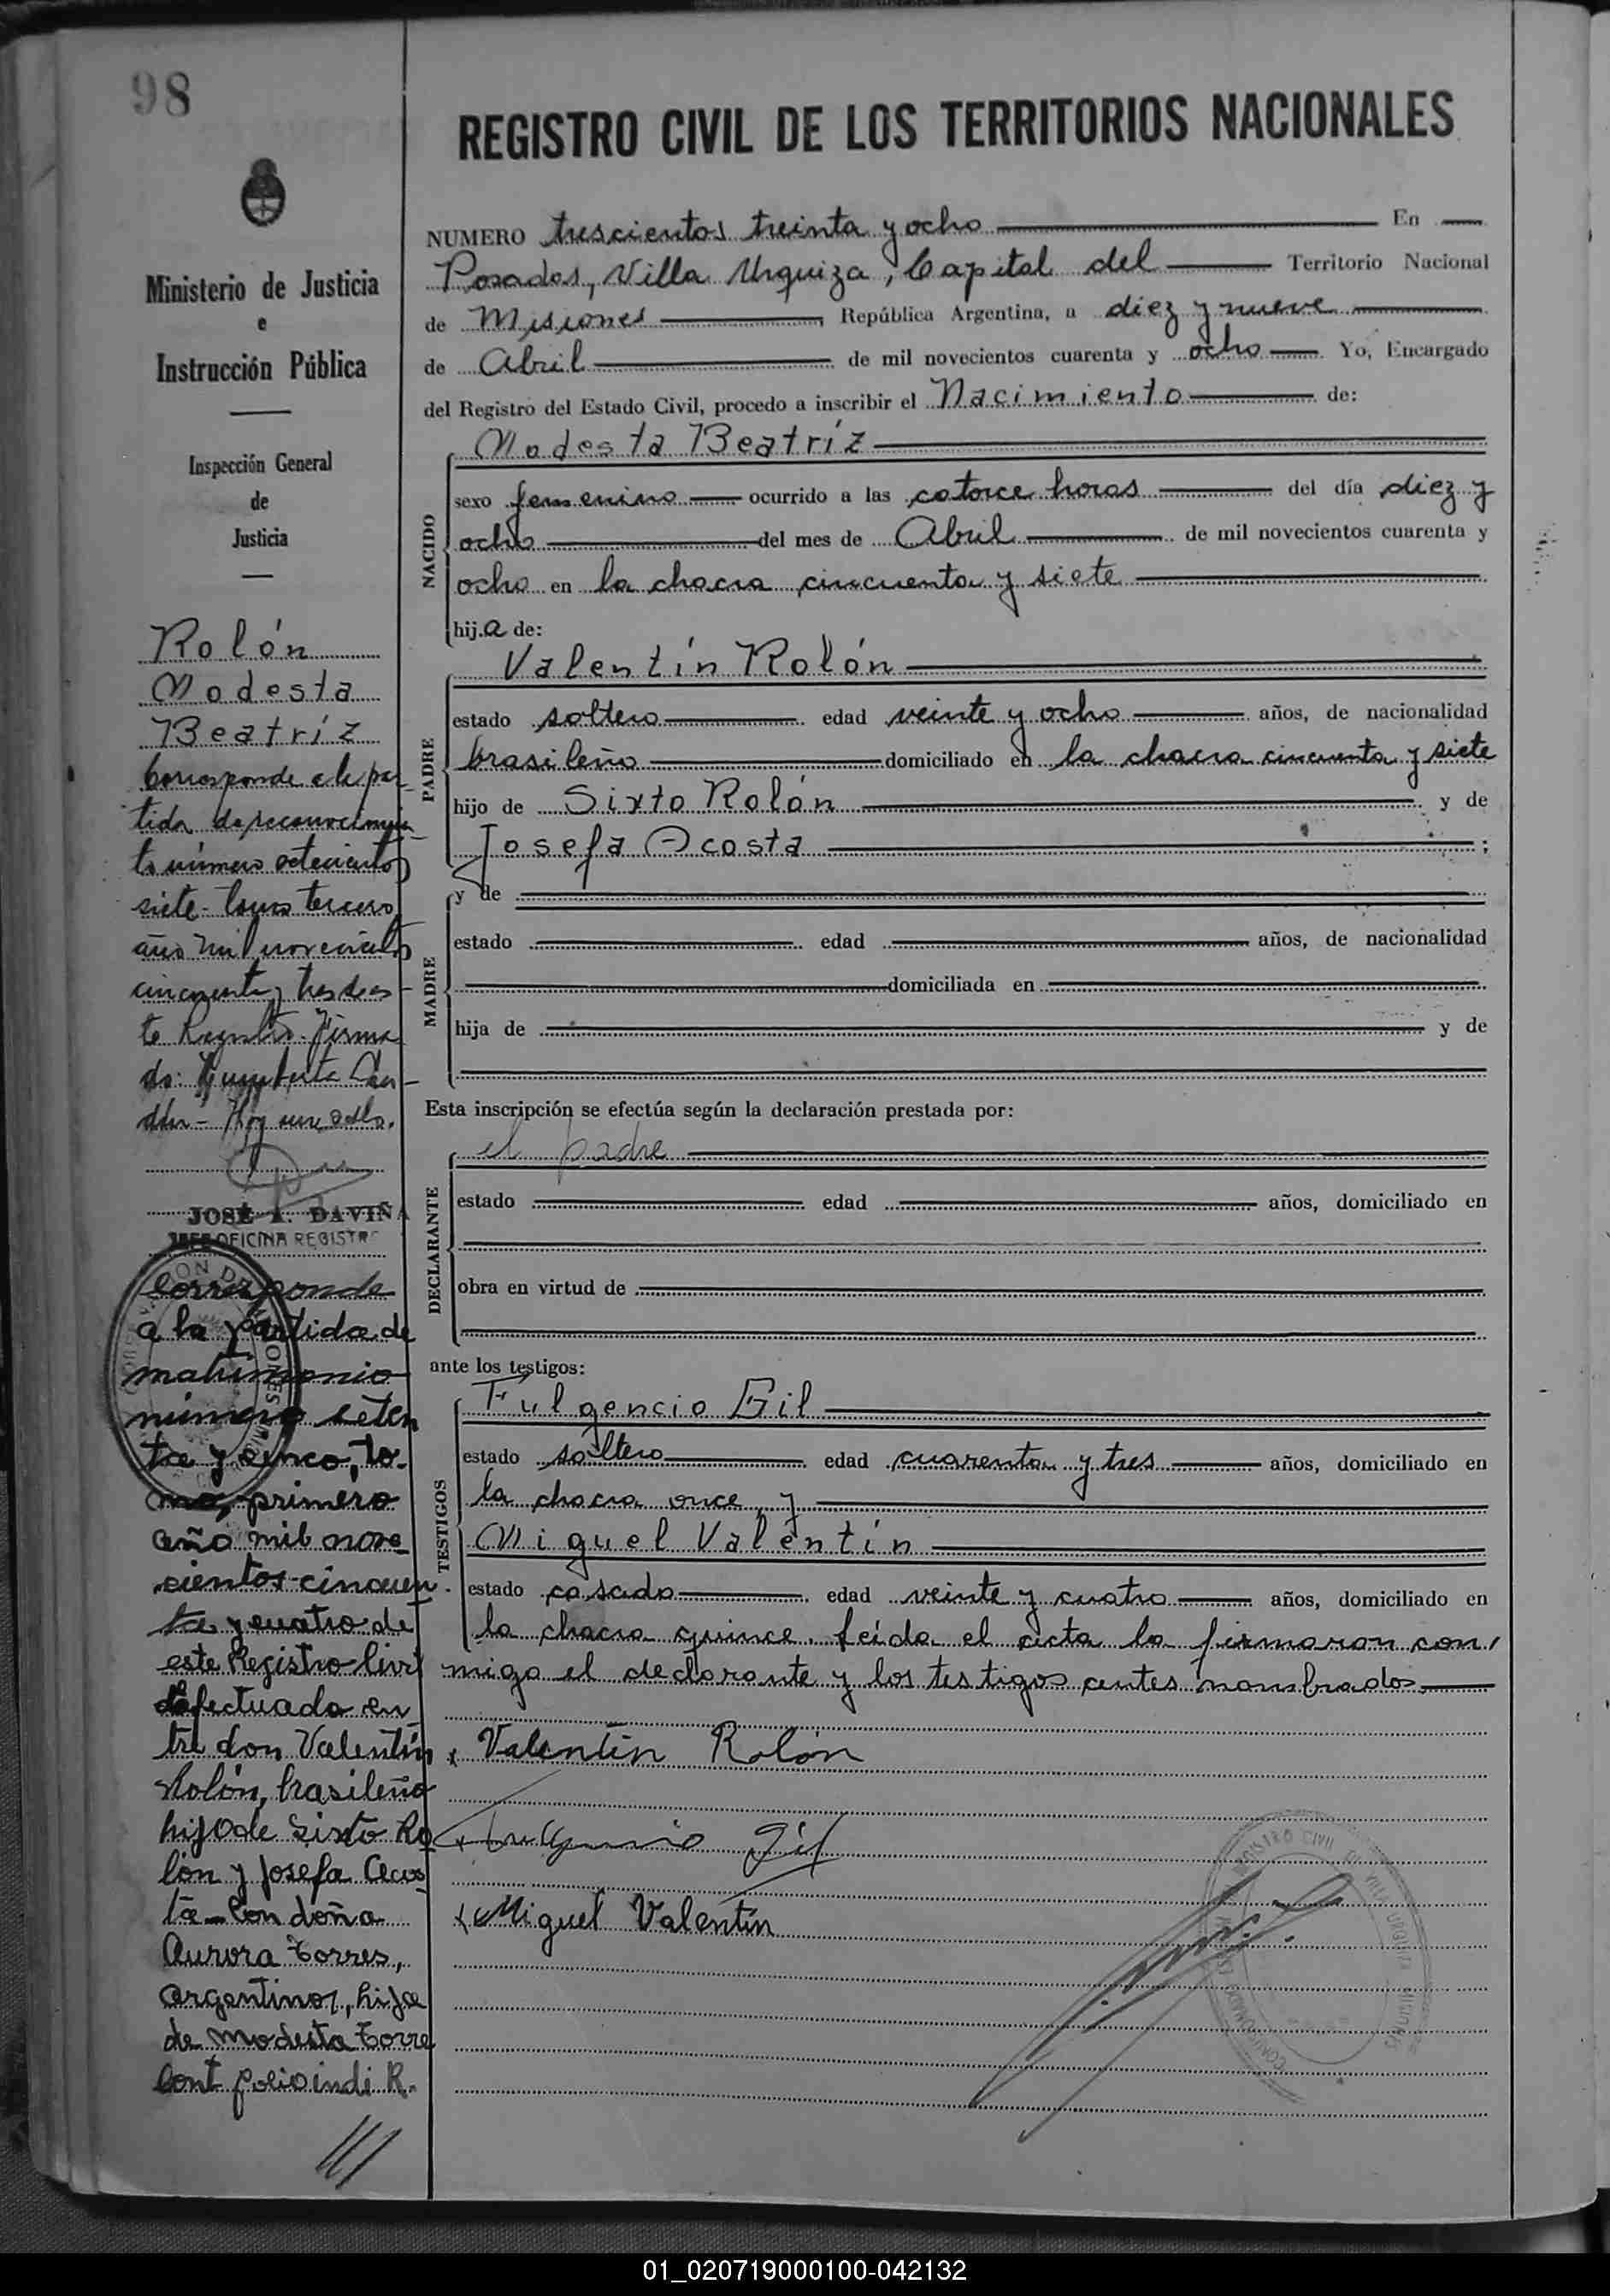 98
REGISTRO CIVIL DE LOS TERRITORIOS NACIONALES
Ministerio de Justicia
e
Instrucción Pública
Inspección General
de
Justicia
Rolón
Modesta
Beatríz
Corresponde a la par-
tida de reconocimien-
to número setecientos
siete - tomo tercero
año mil novecientos
cincuenta y tres de es-
te Registro. Firma-
do:
JOSÉ A. DAVIÑA
JEFE OFICINA REGISTRO
Corresponde
a la partida de
matrimonio
número seten
ta y cinco, to-
mo, primero
año mil nove
cientos cincuen
ta y cuatro de
este Registro Civil
efectuada en
tre don Valentín
Rolón, brasileño
hijo de Sixto Ro
lón y Josefa Acos
ta - Con doña
Aurora Torres,
argentina, hija
de Modesta Torre
Cont folio indi R.
NUMERO trescientos treinta y ocho En
Posadas, Villa Urquiza, Capital del Territorio Nacional
de Misiones, República Argentina, a diez y nueve
de Abril de mil novecientos cuarenta y ocho Yo, Encargado
del Registro del Estado Civil, procedo a inscribir el Nacimiento de:
NACIDO
Modesta Beatríz
sexo femenino ocurrido a las catorce horas del día diez y
ocho del mes de Abril de mil novecientos cuarenta y
ocho en la chacra cincuenta y siete
hija de:
PADRE
Valentín Rolón
estado soltero edad veinte y ocho años, de nacionalidad
brasileño domiciliado en la chacra cincuenta y siete
hijo de Sixto Rolón y de
Josefa Acosta ;
y de
MADRE
estado edad años, de nacionalidad
domiciliada en
hija de y de
Esta inscripción se efectúa según la declaración prestada por:
DECLARANTE
el padre
estado edad años, domiciliado en
obra en virtud de
ante los testigos:
TESTIGOS
Fulgencio Gil
estado soltero edad cuarenta y tres años, domiciliado en
la chacra once, y
Miguel Valentín
estado casado edad veinte y cuatro años, domiciliado en
la chacra quince. Leída el acta la firmaron con,
migo el declarante y los testigos antes nombrados.
x Valentín Rolón
x Fulgencio Gil
x Miguel Valentín
01_020719000100-042132